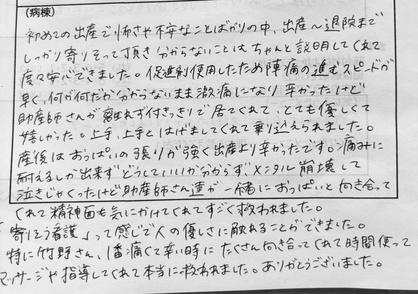 (病棟)
初めての出産で怖さや不安なことばかりの中、出産〜退院まで
しっかり寄りそって頂き分からないことはちゃんと説明してくれて
度々安心できました。促進剤使用したため陣痛の進むスピードが
早く、何が何だか分からないまま激痛になり辛かったけど
助産師さんが離れず付きっきりで居てくれて、とても優しくて
嬉しかった。上手、上手とはげましてくれて乗り込えられました。
産後はおっぱいの張りが強く出産より辛かったです。痛みに
耐えるしか出来ずどうしていいか分からず、メンタル崩壊して
泣きじゃくったけど助産師さん達が一緒におっぱいと向き合って
くれて精神面も気にかけてくれてすごく救われました。
「寄そう看護」って感じで人の優しさに触れることができました。
特に竹野さん、1番痛くて辛い時にたくさん向き合ってくれて時間使って
マッサージや指導してくれて本当に救われました。ありがとうございました。